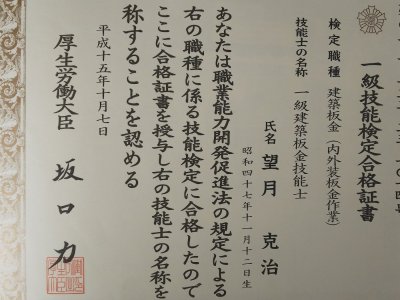 一級技能検定合格証書
検定職種 建築板金（内外装板金作業）
技能士の名称 一級建築板金技能士
氏名 望月 克治
昭和四十七年十一月十二日生
あなたは職業能力開発促進法の規定による
右の職種に係る技能検定に合格したので
ここに合格証書を授与し右の技能士の名称を
称することを認める
平成十五年十月七日
厚生労働大臣 坂口力